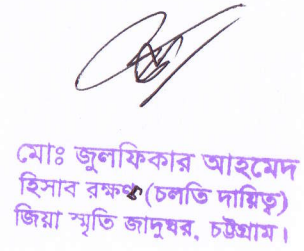 মোঃ জুলফিকার আহমেদ
হিসাব রক্ষণ (চলতি দায়িত্ব)
জিয়া স্মৃতি জাদুঘর, চট্টগ্রাম।